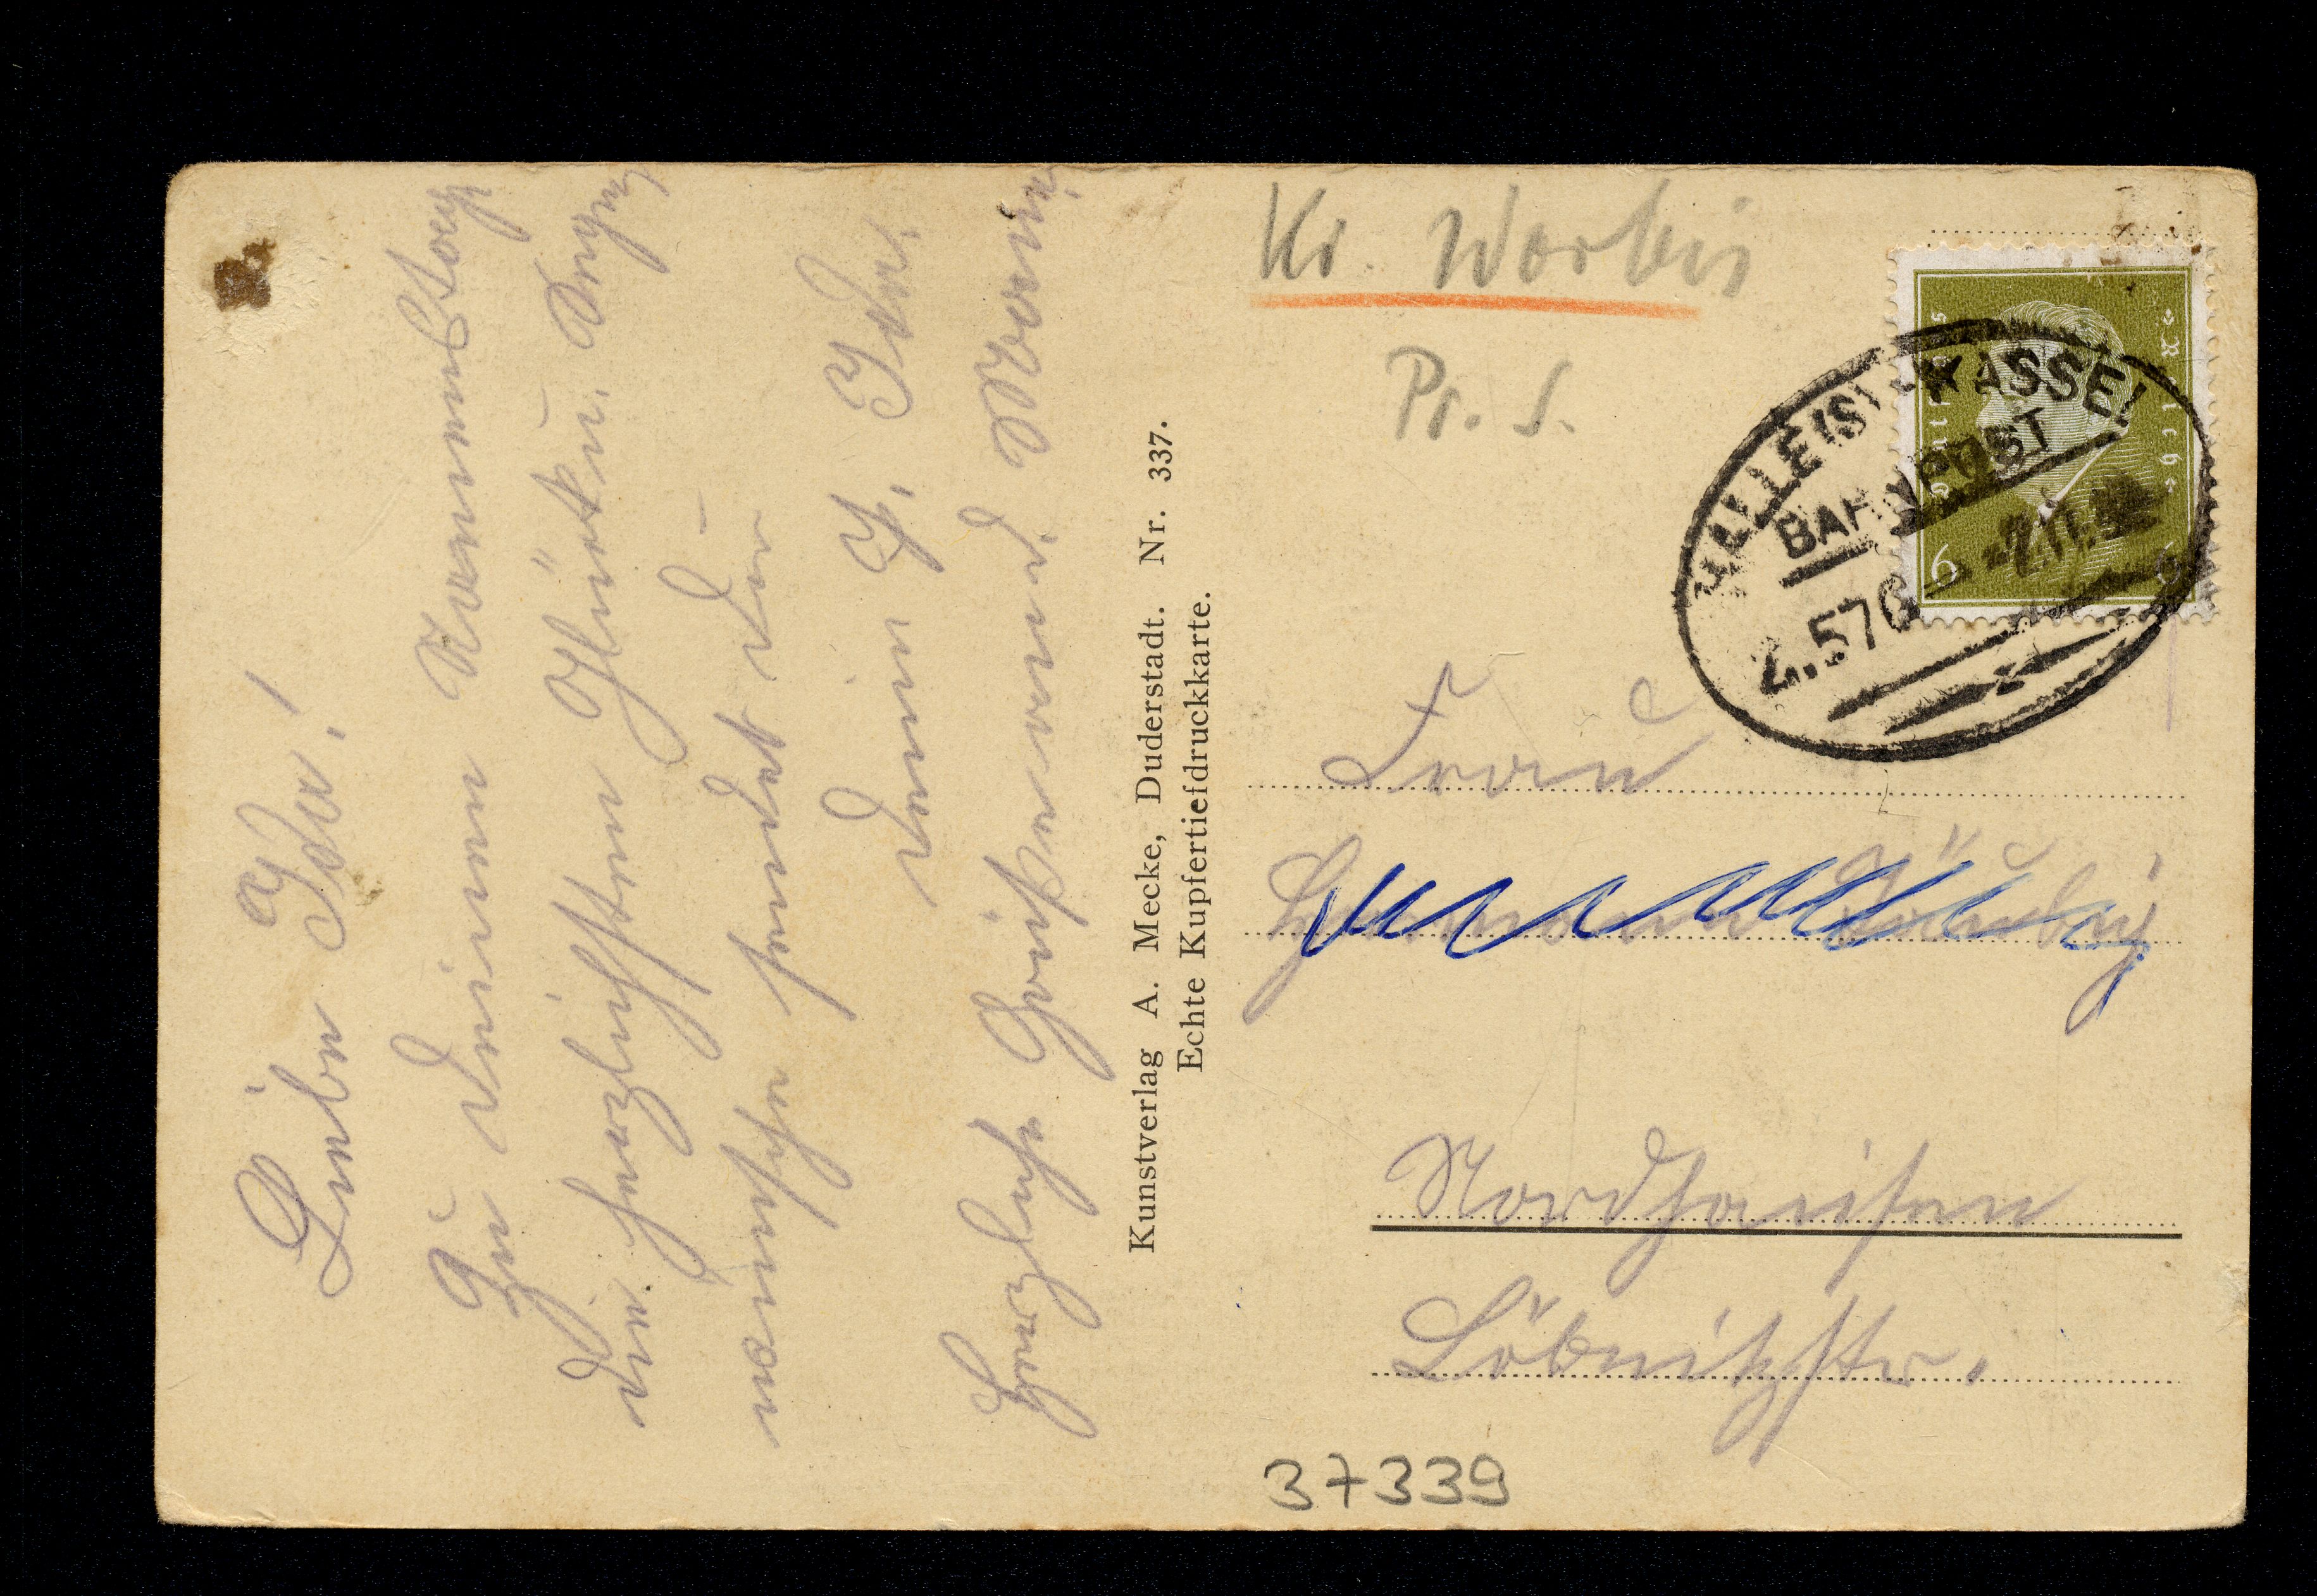 Liebe Ida!
Zu deinem Namenstage
die herzlichsten Glück u. Segens
wünsche sendet dir
Herzliche Grüße
Kunstverlag A. Mecke, Duderstadt. Nr. 337.
Echte Kupfertiefdruckkarte.
Kr. Worbis
Pr. S.
Deutsches Reich
6
HALLE (S) - KASSEL
BAHNPOST
Z. 576
Frau
Nordhausen
Löbnitzstr.
37339